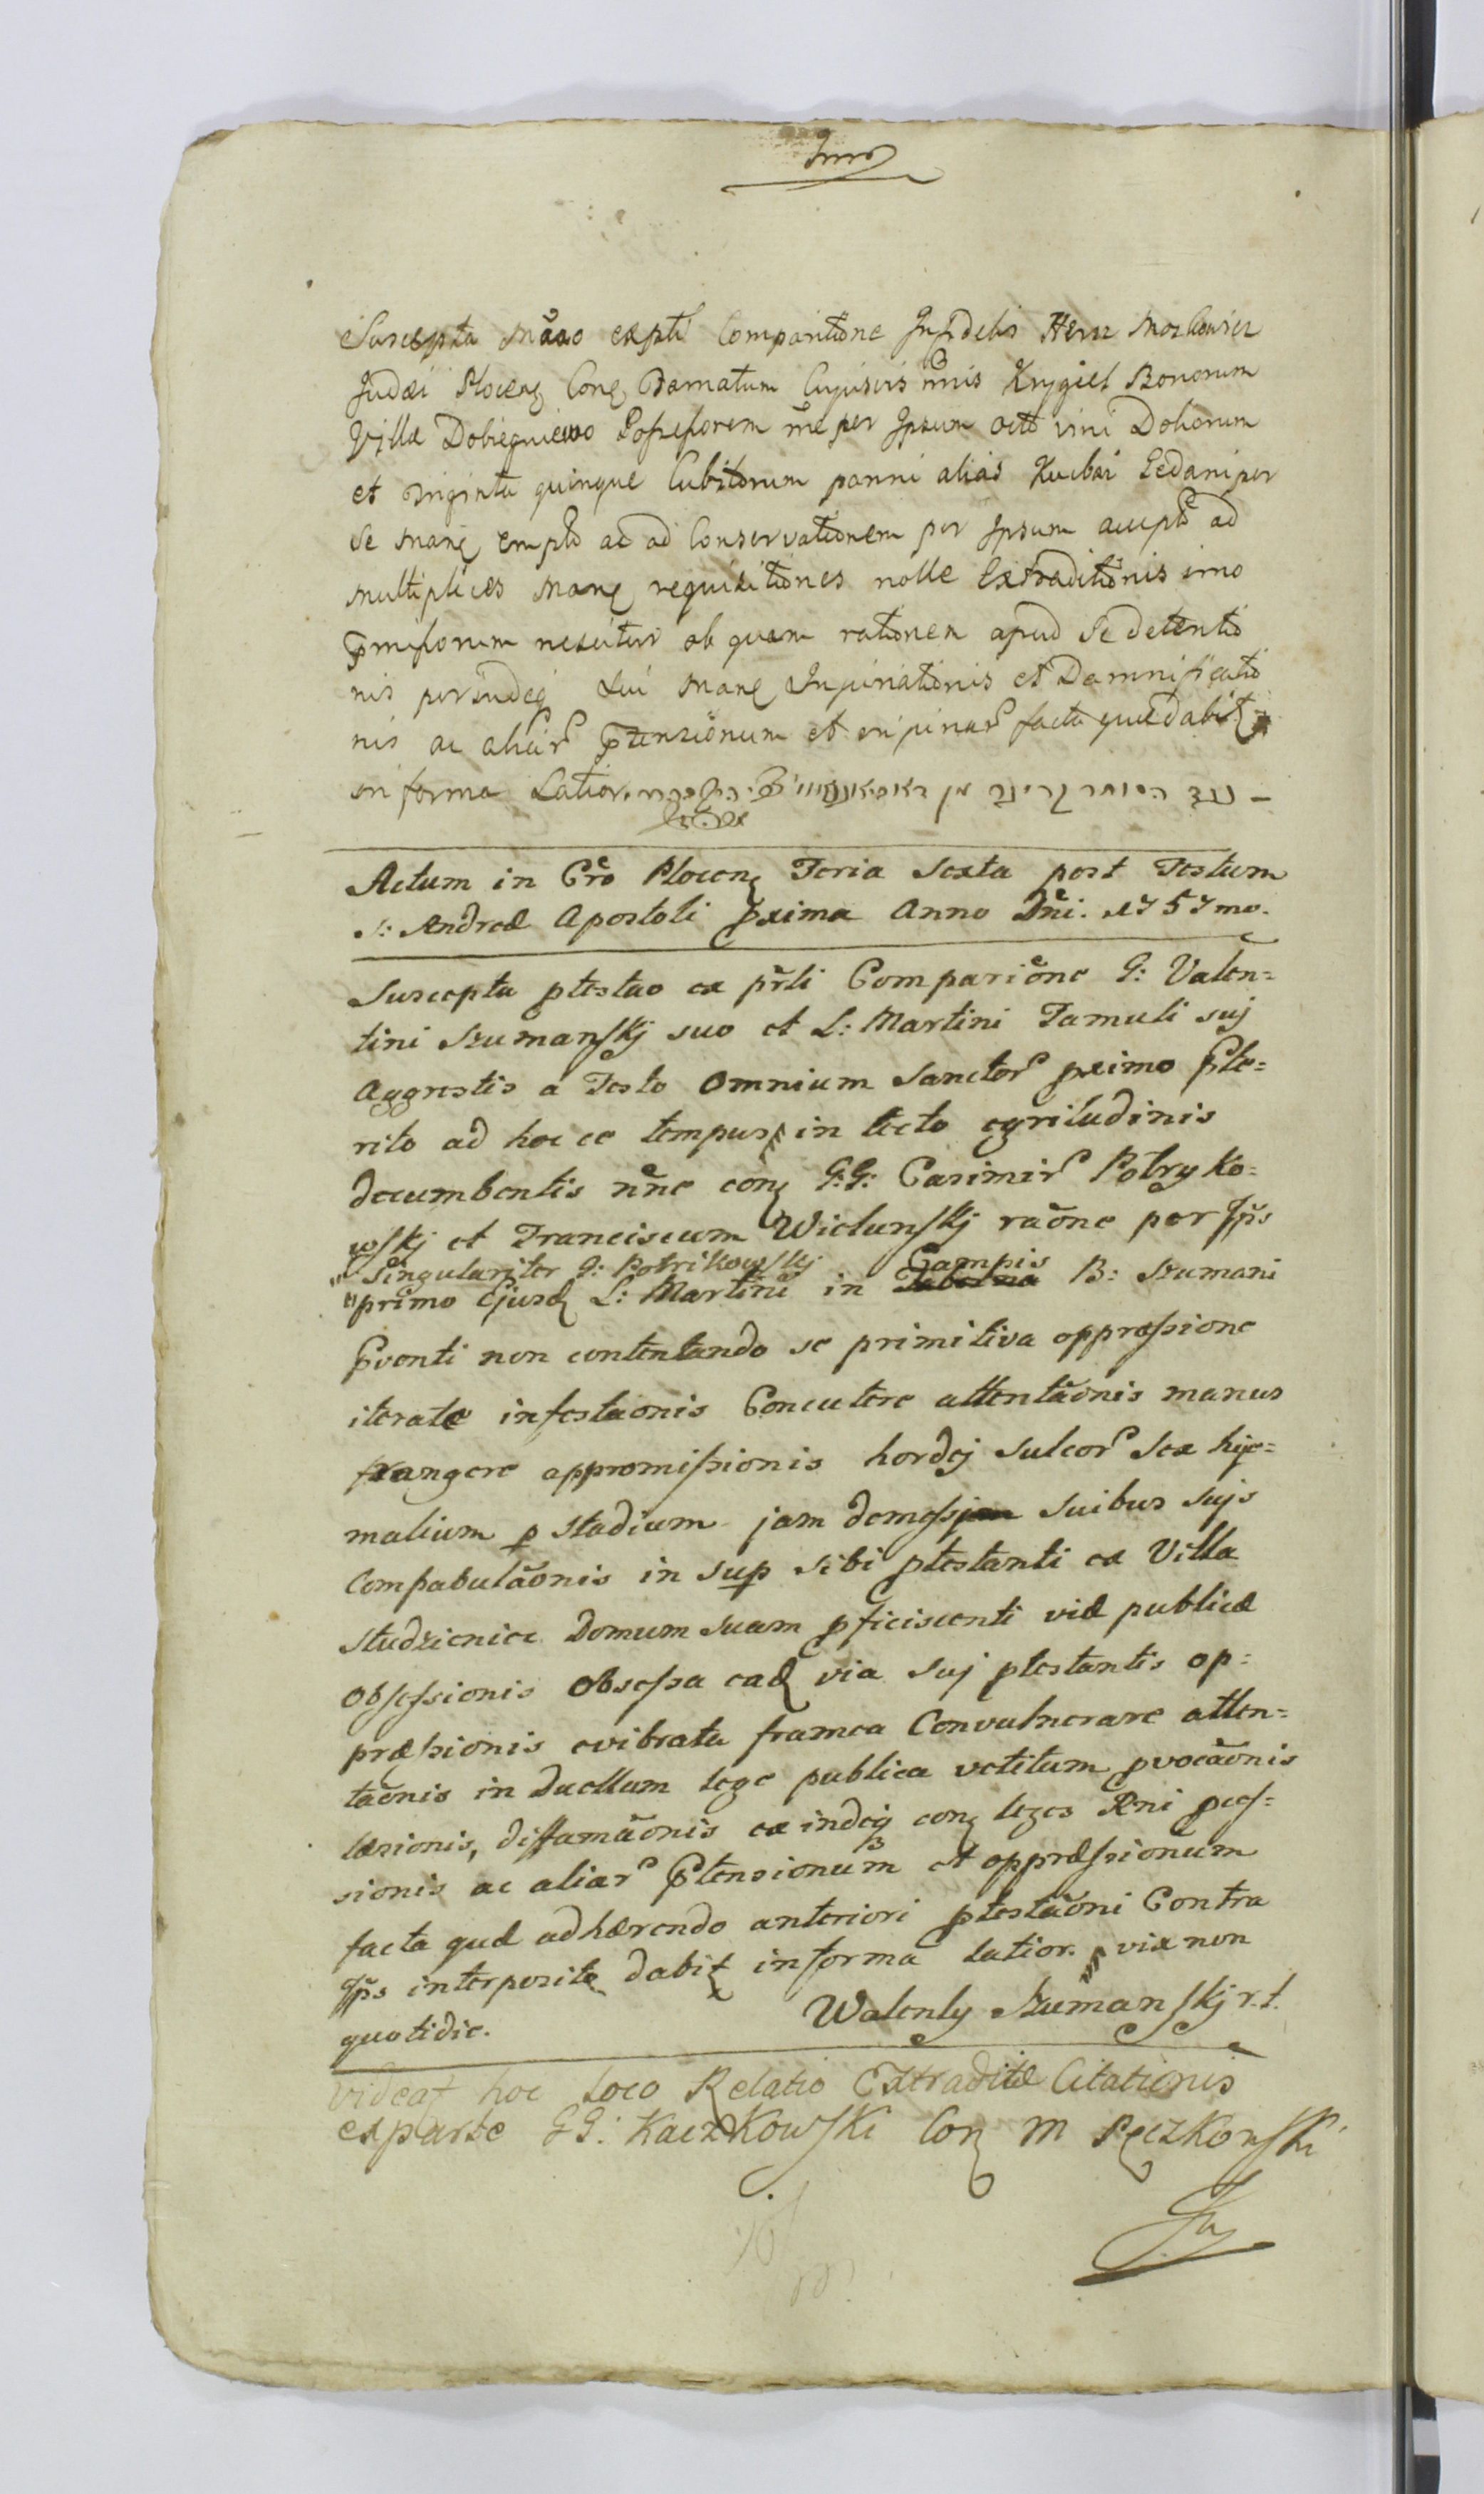 Suscepta Mãao expti Comparitione Infidelis Herz Moskowicz
Judæi Plocen Con Famatum Cujusvis nnis Krygiel Bonorum
Villæ Dobiegniewo Possessorem rne per Ipsum octo vini Doliorum
et triginta quinque Cubitorum panni alias Kuchai Gedani per
Se Man empto ac ad Conservationem per Ipsum accepto ad
multiplices Man requisitiones nolle Extraditionis imo
præmissorum nescitur ob quam rationem apud Se detentio
nis perindeq Sui Man Injuriationis et Damnificatio
nis ac aliar ptensionum et in pinar facta quæ dabit
in forma Latior.
Actum in Cro Plocen Feria Sexta post Festum
S: Andreæ Apostoli pxima Anno Dni. 1757mo.
Suscepta ptestao ex prli Comparione G: Valen=
tini Szumanskj suo et L: Martini Famuli suj
Aggrestis a Festo Omnium Sanctor pximo pte=
rito ad hocce tempus in lecto egritudinis
decumbentis nne con G:G: Casimir Potryko=
wskj et Franciscum Wielunskj raone per Ips
Singulariter G: Potrikowskj Campis
primo Ejusd L: Martini in Taberna B: Szumani
pventi non contentando se primitiva oppressione
iteratæ infestaonis Concutere attentaonis manus
frangere appromissionis hordej Sulcor Sex hye=
malium p stadium jam demessj Suibus Sujs
Compabulaonis in sup sibi ptestanti ex Villa
Studzienice Domum suam pficiscenti viæ publicæ
Obsessionis Obsessa ead via suj ptestantis op=
præssionis evibrata framea Convulnerare atten=
taonis in Duellum lege publica vetitum pvocaonis
læsionis, diffamaonis ex indeq con leges Rni poes=
sionis ac aliar Ptensionum et oppræssionum
facta quæ adhærendo anteriori ptestaoni Contra
Ips interpositæ dabit in forma latior. vix non
quotidie. Walenty Szumanskj r.t.
Videat hoc loco Relatio Extraditæ Citationis
ex parte GG: Kaczkowski Con M Pęczkowski